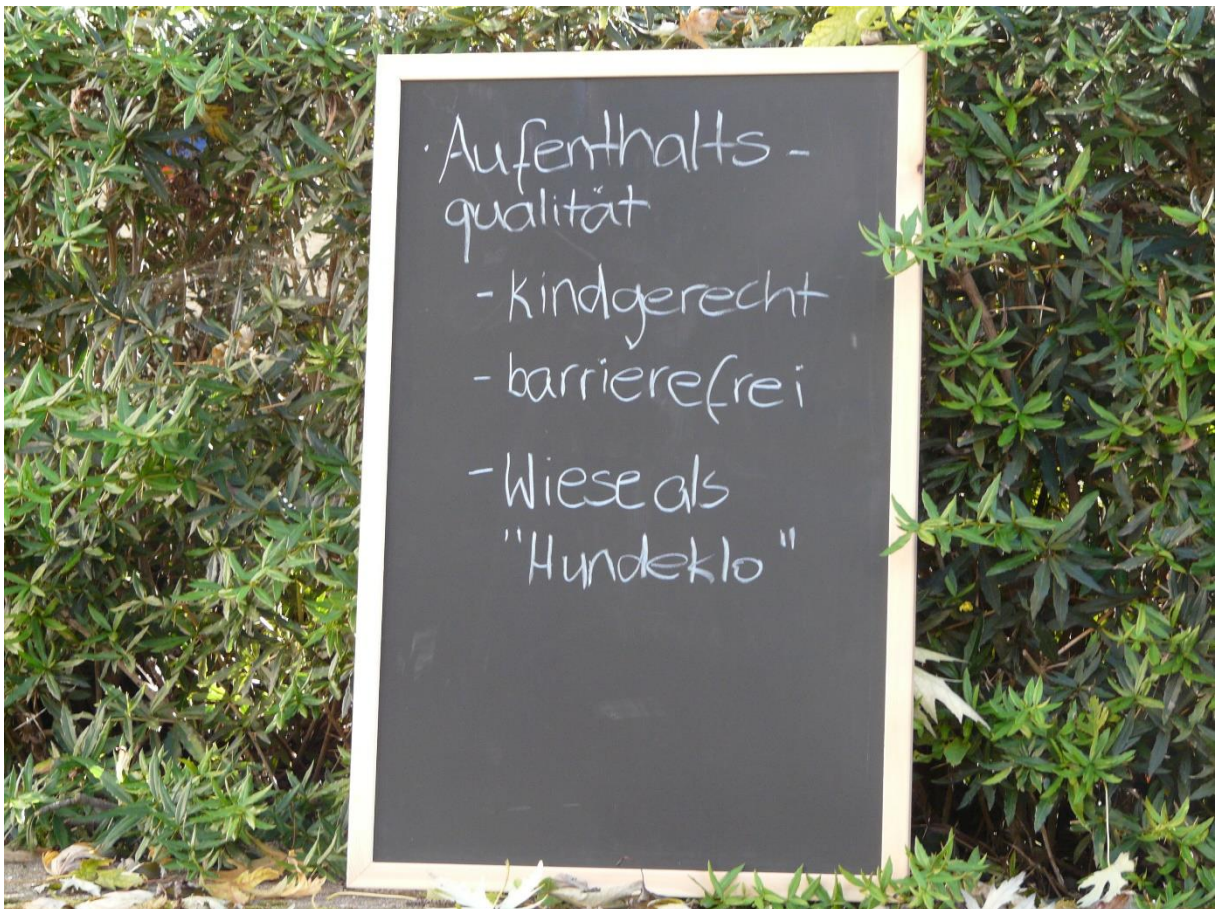 · Aufenthalts-
qualität
- kindgerecht
- barrierefrei
- Wiese als
"Hundeklo"